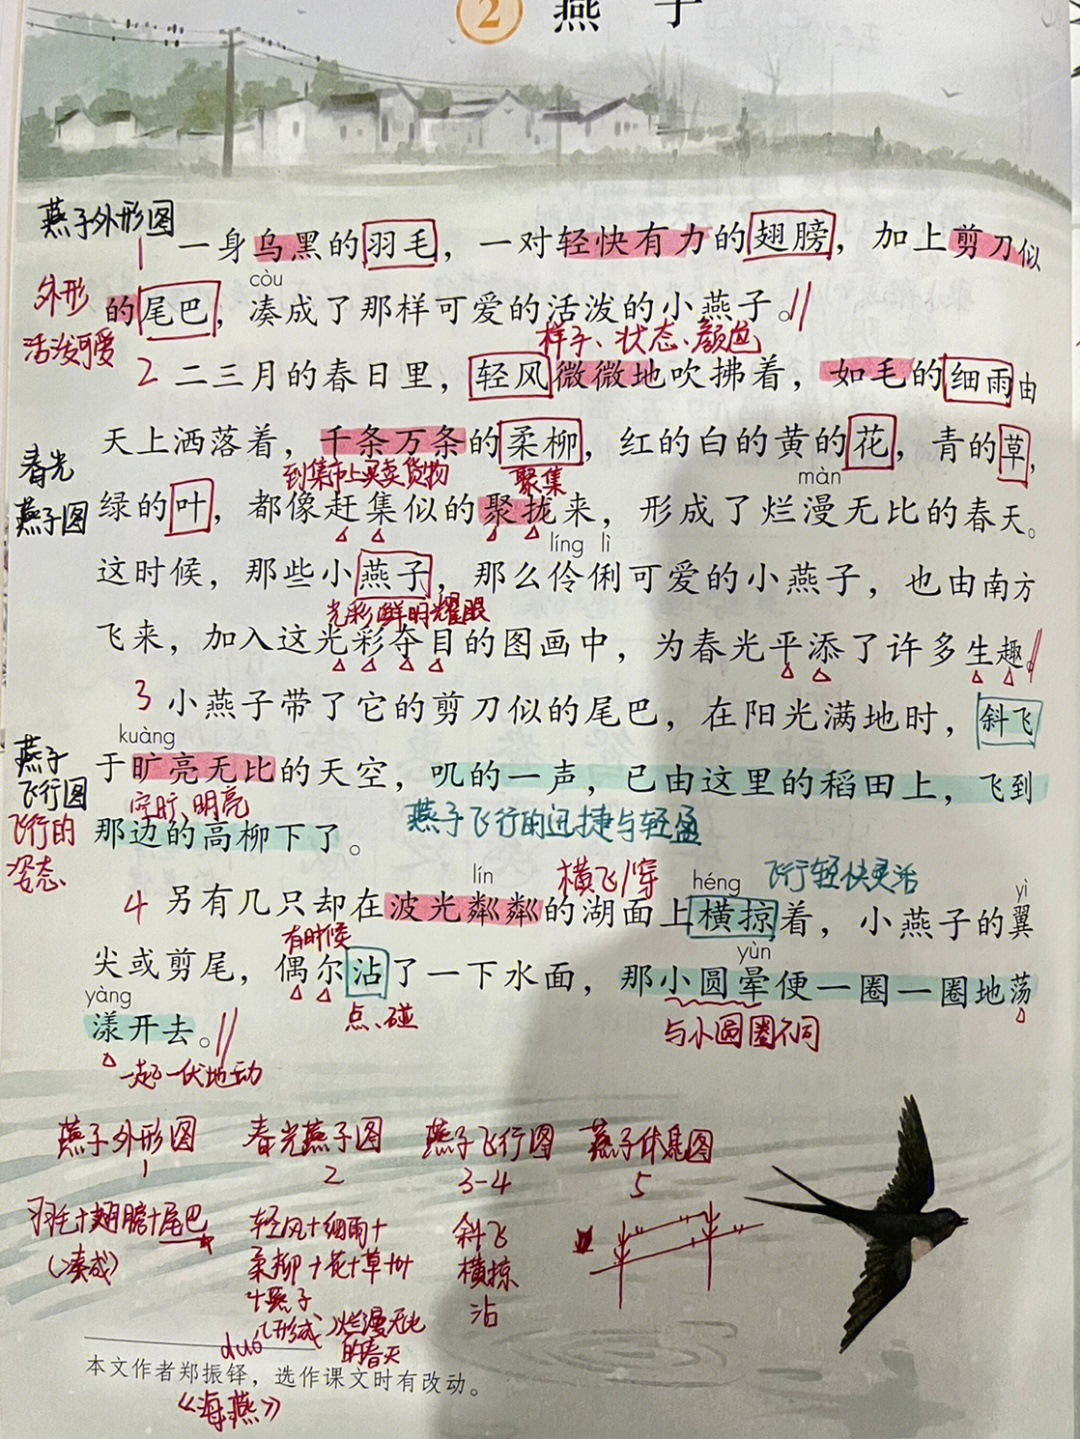 2 燕子
燕子外形图
1
一身乌黑的羽毛，一对轻快有力的翅膀，加上剪刀似
còu
外形
的尾巴，凑成了那样可爱的活泼的小燕子。
活泼可爱
样子、状态、颜色
2 二三月的春日里，轻风微微地吹拂着，如毛的细雨由
天上洒落着，千条万条的柔柳，红的白的黄的花，青的草，
春光
燕子图
到集市上买卖货物 聚集
màn
绿的叶，都像赶集似的聚拢来，形成了烂漫无比的春天。
líng lì
这时候，那些小燕子，那么伶俐可爱的小燕子，也由南方
光彩鲜明耀眼
飞来，加入这光彩夺目的图画中，为春光平添了许多生趣。
3 小燕子带了它的剪刀似的尾巴，在阳光满地时，斜飞
kuàng
燕子
飞行图
于旷亮无比的天空，叽的一声，已由这里的稻田上，飞到
空旷，明亮
飞行的
姿态
那边的高柳下了。
燕子飞行的迅捷与轻盈
lín
横飞/穿
héng
飞行轻快灵活
yì
4 另有几只却在波光粼粼的湖面上横掠着，小燕子的翼
有时候
yùn
尖或剪尾，偶尔沾了一下水面，那小圆晕便一圈一圈地荡
yàng
点、碰
与小圆圈不同
漾开去。
一起一伏地动
燕子外形图 春光燕子图 燕子飞行图 燕子休息图
1 2 3-4 5
羽毛+翅膀+尾巴
(凑成)
轻风+细雨+
柔柳+花+草+叶
+燕子
(形成)烂漫无比
的春天
斜飞
横掠
沾
duó
本文作者郑振铎，选作课文时有改动。
《海燕》